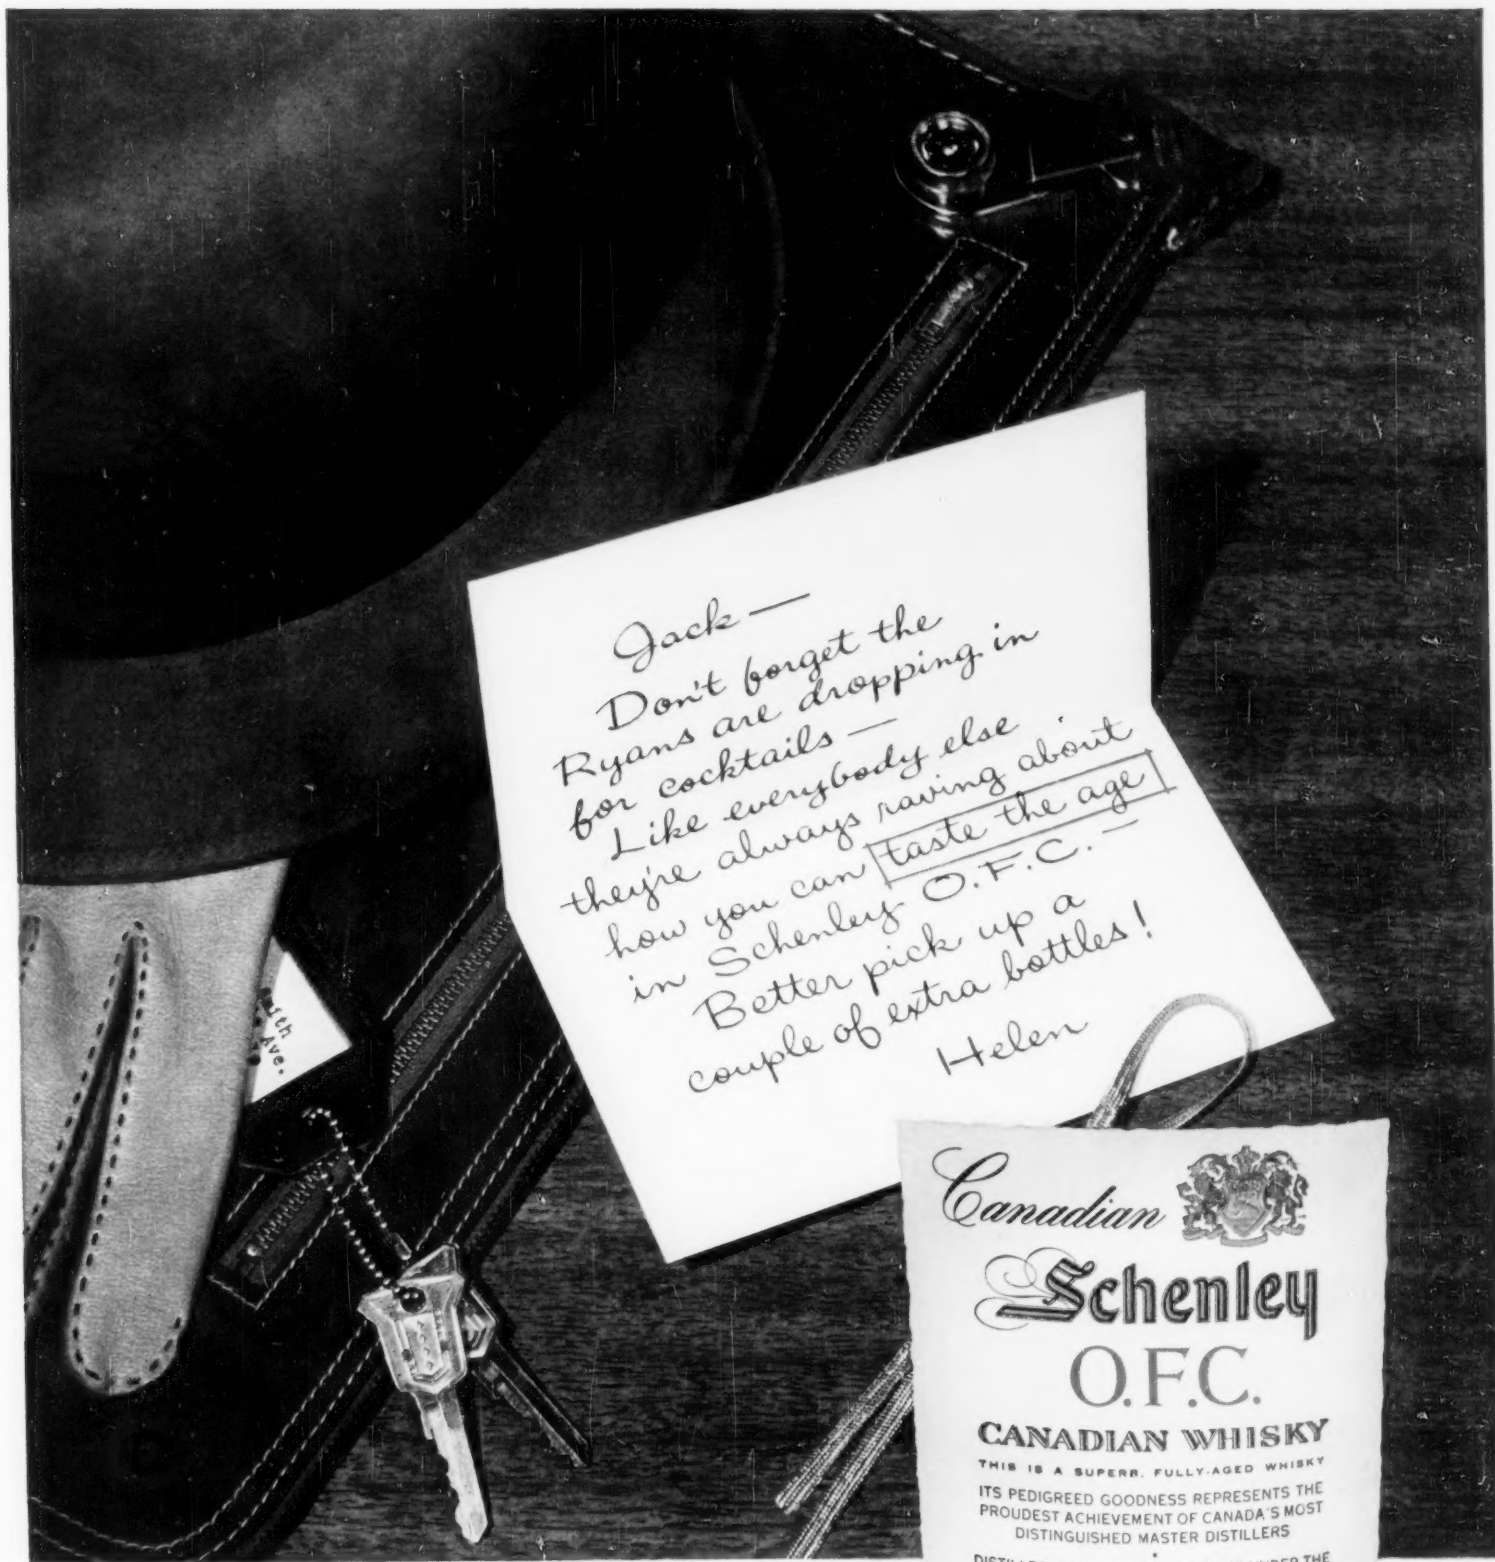 Jack —
Don't forget the
Ryans are dropping in
for cocktails —
Like everybody else
they're always raving about
how you can taste the age
in Schenley O.F.C. —
Better pick up a
couple of extra bottles!
Helen
Ave.
Canadian
Schenley
O.F.C.
CANADIAN WHISKY
THIS IS A SUPERB, FULLY-AGED WHISKY
ITS PEDIGREED GOODNESS REPRESENTS THE
PROUDEST ACHIEVEMENT OF CANADA'S MOST
DISTINGUISHED MASTER DISTILLERS
THE